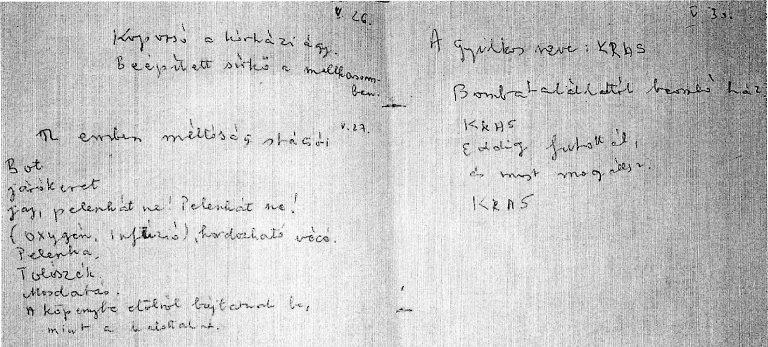 V. 26.
Koporsó a kórházi ágy.
Beépített sírkő a mellkasom-
ban.
V. 27.
Az emberi méltóság stációi
Bot
járókeret
jaj, pelenkát ne! Pelenkát ne!
(oxygén, infúzió), hordozható vécé.
Pelenka,
Tolószék.
Mosdatás.
A köpenybe elölről bújtatnak be,
mint a
V 30.
A gyilkos neve: KRAS
Bombatalálattól beomló ház
KRAS
Eddig futottál,
és most megállsz.
KRAS